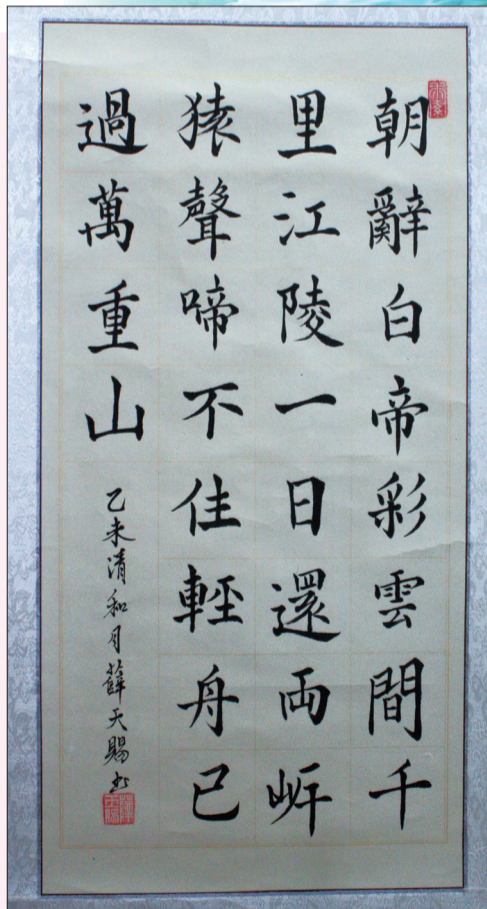 朝辭白帝彩雲間千
里江陵一日還兩岍
猿聲啼不住輕舟已
過萬重山
乙未清和月薛天賜书